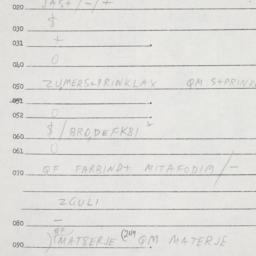 020.
$
030
+
031
0
040
050 ZUMERS+PRINKLAX QM S+PRINK
051
0
052
$ / BRO,DEFKBI
060
0
061
070 QF FARBIND+ MITAFODIM/-
ZGULI
080 -
090 MATBERJE (2U4 QM MATERJE